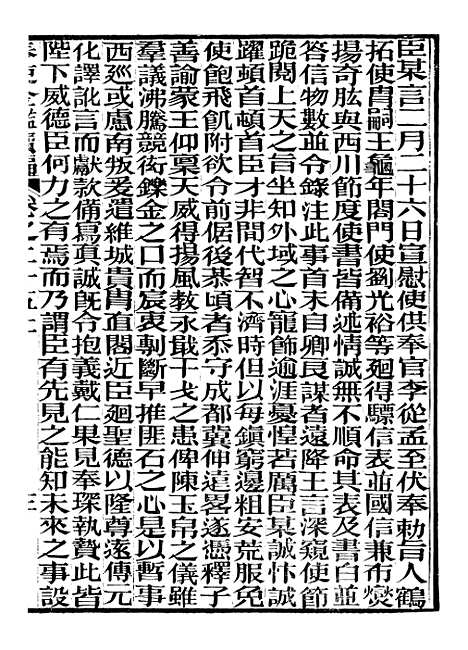 臣某言二月二十六日宣慰使供奉官李從孟至伏奉勅旨入鶴
拓使冑嗣王龜年閤門使劉光裕等廻得驃信表並國信兼布燮
揚奇肱與西川節度使書皆備述情誠無不順命其表及書白並
答信物數並令錄注此事首末自卿良謀者遠降王言深窺使節
跪閱上天之旨坐知外域之心寵飾逾涯憂惶若厲臣某誠忭誠
躍頓首頓首臣才非間代智不濟時但以每鎭窮邊粗安荒服免
使飽飛飢附欲令前倨後恭頃者忝守成都冀伸遠畧遂憑釋子
善諭蒙王仰稟天威得揚風敎永戢干戈之患俾陳玉帛之儀雖
羣議沸騰競衒鑠金之口而宸衷剸斷早推匪石之心是以暫事
西廵或慮南叛爰遣維城貴冑直閣近臣廻聖德以隆尊遠傳元
化譯訛言而獻款備寫眞誠旣令抱義戴仁果見奉琛執贄此皆
陛下威德臣何力之有焉而乃謂臣有先見之能知未來之事設